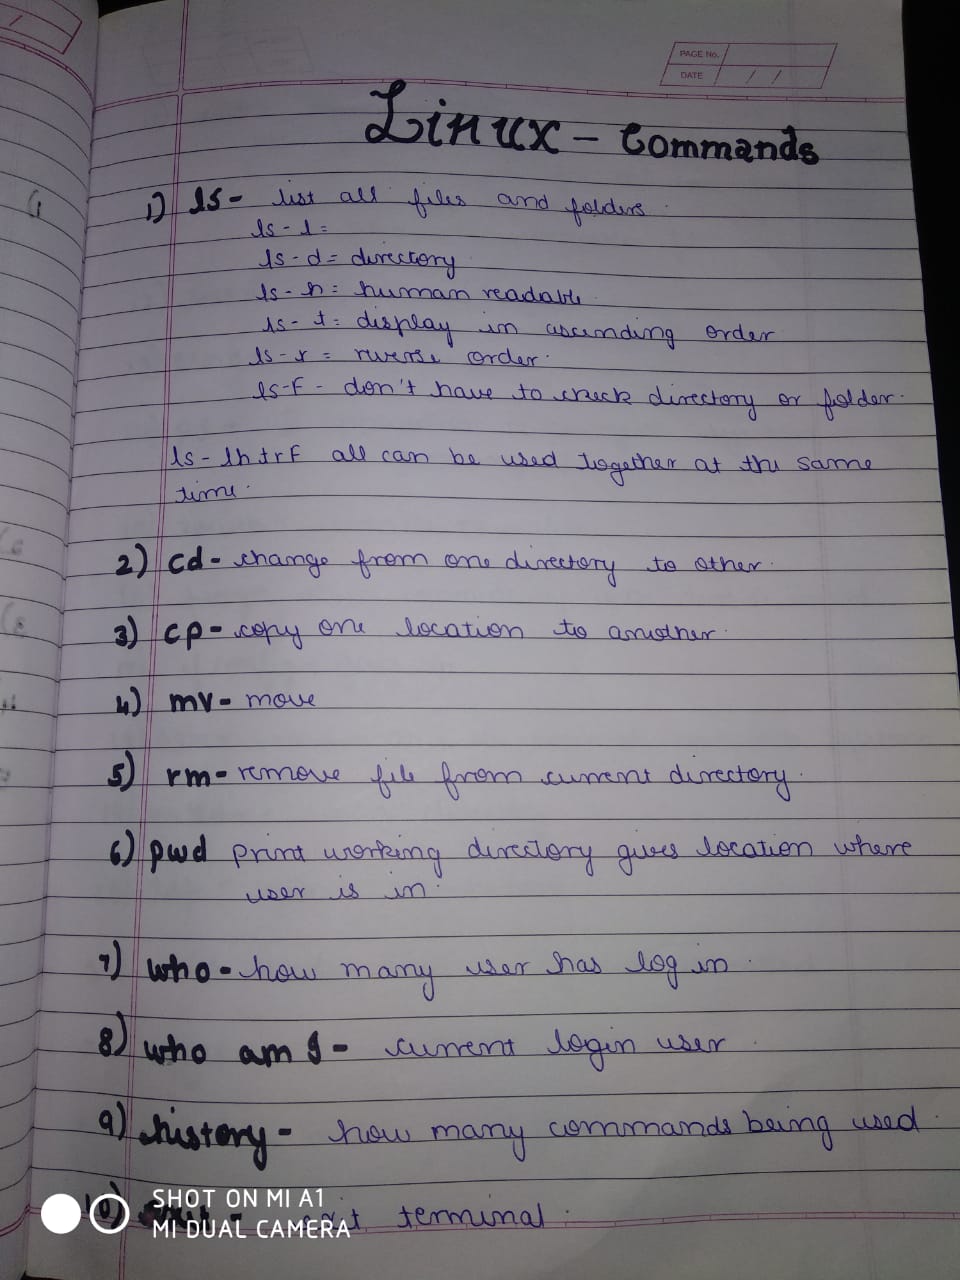 PAGE No.
DATE / /
Linux - Commands
1) ls - list all files and folders.
ls - l =
ls - d = directory
ls - h = human readable.
ls - t = display in ascending order
ls - r = reverse order.
ls - F - don't have to check directory or folder.
ls - lhtrF all can be used together at the same
time.
2) cd - change from one directory to other.
3) cp - copy one location to another.
4) mv - move
5) rm - remove file from current directory.
6) pwd print working directory gives location where
user is in.
7) who - how many user has log in.
8) who am I - current login user.
9) history - how many commands being used.
10) exit - exit terminal.
SHOT ON MI A1
MI DUAL CAMERA